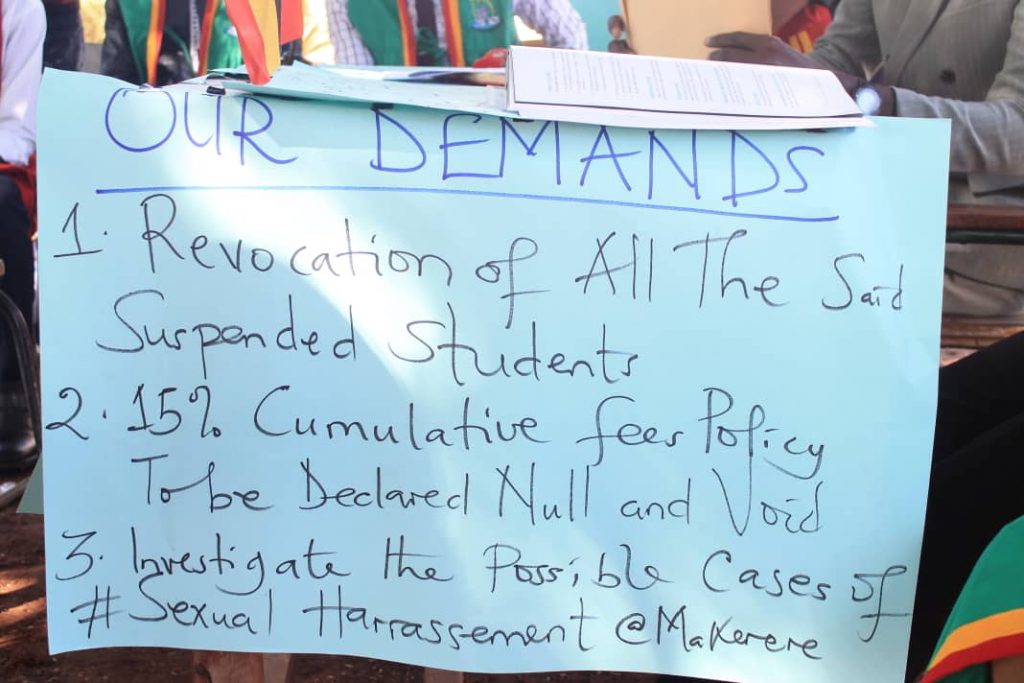 OUR DEMANDS
1. Revocation of All The Said
Suspended Students
2. 15% Cumulative fees Policy
To be Declared Null and Void
3. Investigate the Possible Cases of
#Sexual Harrassement @Makerere